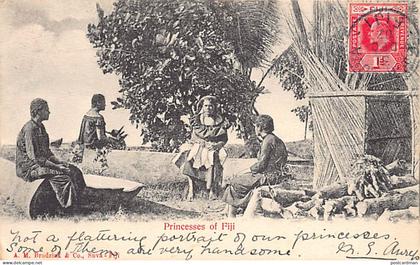 POSTAGE REVENUE
1D
Princesses of Fiji
A. M. Brodziak & Co., Suva - Fiji.
Not a flattering portrait of our princesses.
Some of them are very handsome